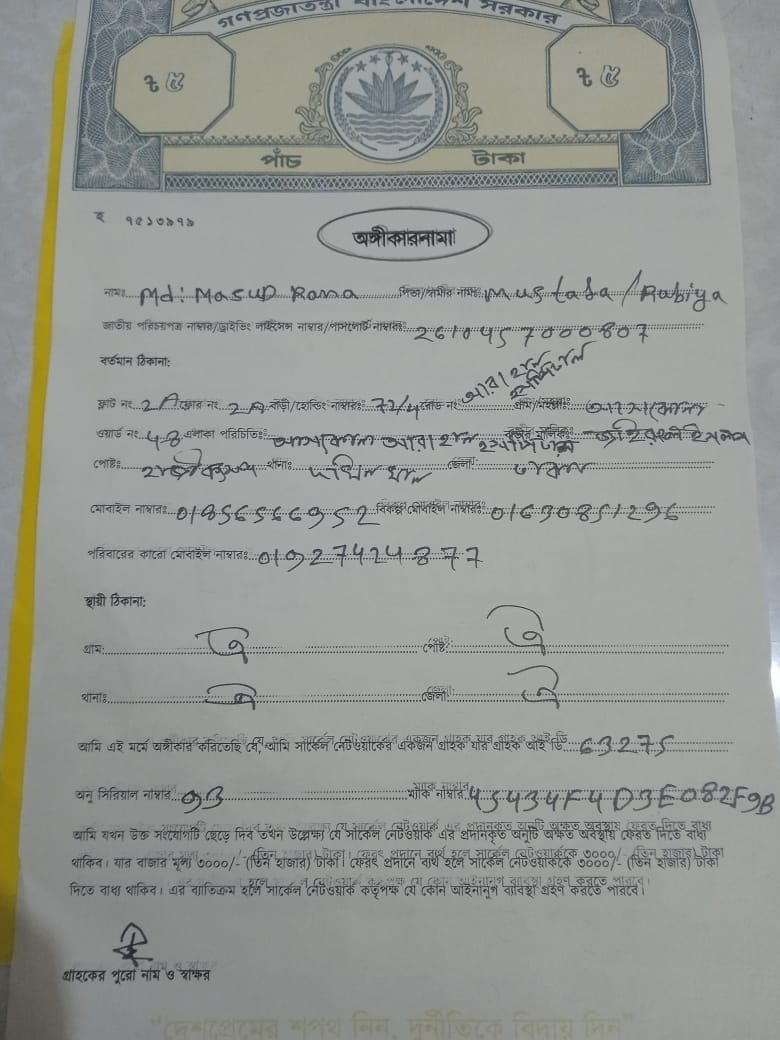 গণপ্রজাতন্ত্রী বাংলাদেশ সরকার
৳ ৫ ৳ ৫
পাঁচ টাকা
অঙ্গীকারনামা
নামঃ Md: Masud Rana পিতা/স্বামীর নামঃ Mustafa / Rabiya
জাতীয় পরিচয়পত্র নাম্বার/ড্রাইভিং লাইসেন্স নাম্বার/পাসপোর্ট নাম্বারঃ 2610457000807
বর্তমান ঠিকানা:
ফ্লাট নং 2A ফ্লোর নং 2A বাড়ী/হোল্ডিং নাম্বারঃ 72/4 রোড নং গ্রাম/মহল্লাঃ
ওয়ার্ড নং 48 এলাকা পরিচিতিঃ
পোষ্টঃ থানাঃ দক্ষিনখান জেলাঃ ঢাকা
মোবাইল নাম্বারঃ বিকল্প মোবাইল নাম্বারঃ 01630851296
পরিবারের কারো মোবাইল নাম্বারঃ 01927424877
স্থায়ী ঠিকানা:
গ্রাম: ঐ পোষ্ট: ঐ
থানাঃ ঐ জেলা: ঐ
আমি এই মর্মে অঙ্গীকার করিতেছি যে, আমি সার্কেল নেটওয়ার্কের একজন গ্রাহক যার গ্রাহক আই ডি 63275
অনু সিরিয়াল নাম্বার 9B ম্যাক নাম্বার 45434F4D3E082F9B
আমি যখন উক্ত সংযোগটি ছেড়ে দিব তখন উল্লেক্ষ্য যে সার্কেল নেটওয়ার্ক এর প্রদানকৃত অনুটি অক্ষত অবস্থায় ফেরত দিতে বাধ্য
থাকিব। যার বাজার মূল্য ৩০০০/- (তিন হাজার) টাকা। ফেরৎ প্রদানে ব্যর্থ হলে সার্কেল নেটওয়ার্ককে ৩০০০/- (তিন হাজার) টাকা
দিতে বাধ্য থাকিব। এর ব্যতিক্রম হলে সার্কেল নেটওয়ার্ক কর্তৃপক্ষ যে কোন আইনানুগ ব্যবস্থা গ্রহণ করতে পারবে।
গ্রাহকের পুরো নাম ও স্বাক্ষর
"দেশপ্রেমের শপথ নিন, দুর্নীতিকে বিদায় দিন"